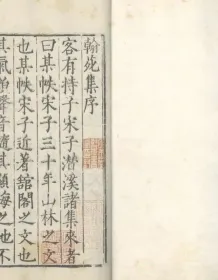 翰苑集序
客有持子宋子潛溪諸集來者
曰某帙宋子三十年山林之文
也某帙宋子近著館閣之文也
其氣貌聲音隨其顯晦之也不